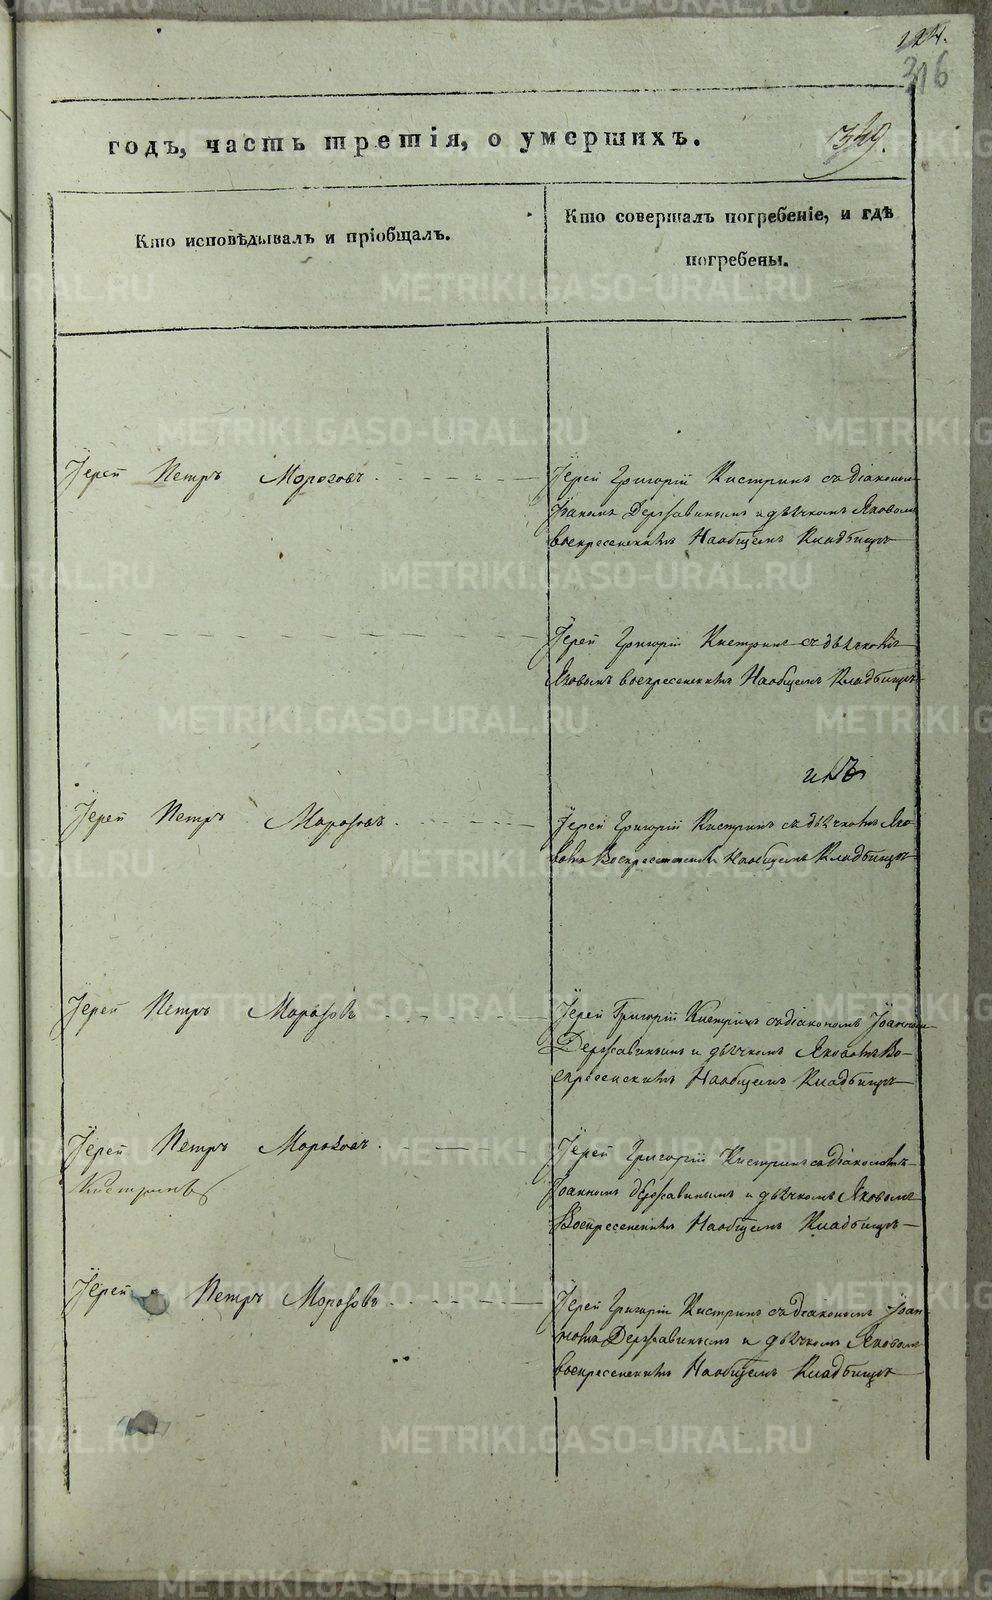 124.
316
349.
годъ, часть третія, о умершихъ.
Кто исповѣдывалъ и пріобщалъ.
Кто совершалъ погребеніе, и гдѣ
погребены.
Іерей Петръ Морозовъ
Іерей Григорій Кистринъ съ діакономъ
Іоаномъ Державинымъ и дьячкомъ Яковомъ
воскресенскимъ На общемъ Кладбищѣ
Іерей Григорій Кистринъ съ дьячкомъ
Яковымъ воскресенскимъ На общемъ Кладбищѣ
Іерей Петръ Морозовъ
Іерей Григорій Кистринъ съ дьячкомъ Яко-
вомъ Воскресенскимъ На общемъ Кладбищѣ
Іерей Петръ Морозовъ
Іерей Григорій Кистринъ съ діакономъ Іоанномъ
Державинымъ и дьячкомъ Яковомъ Во-
скресенскимъ На общемъ Кладбищѣ
Іерей Петръ Морозовъ
Кистринъ
Іерей Григорій Кистринъ съ діакономъ
Іоанномъ державинымъ и дьячкомъ Яковомъ
Воскресенскимъ На общемъ Кладбищѣ
Іерей Петръ Морозовъ
Іерей Григорій Кистринъ съ діакономъ Іоан
номъ Державинымъ и дьячкомъ Яковомъ
воскресенскимъ На общемъ Кладбищѣ
METRIKI.GASO-URAL.RU